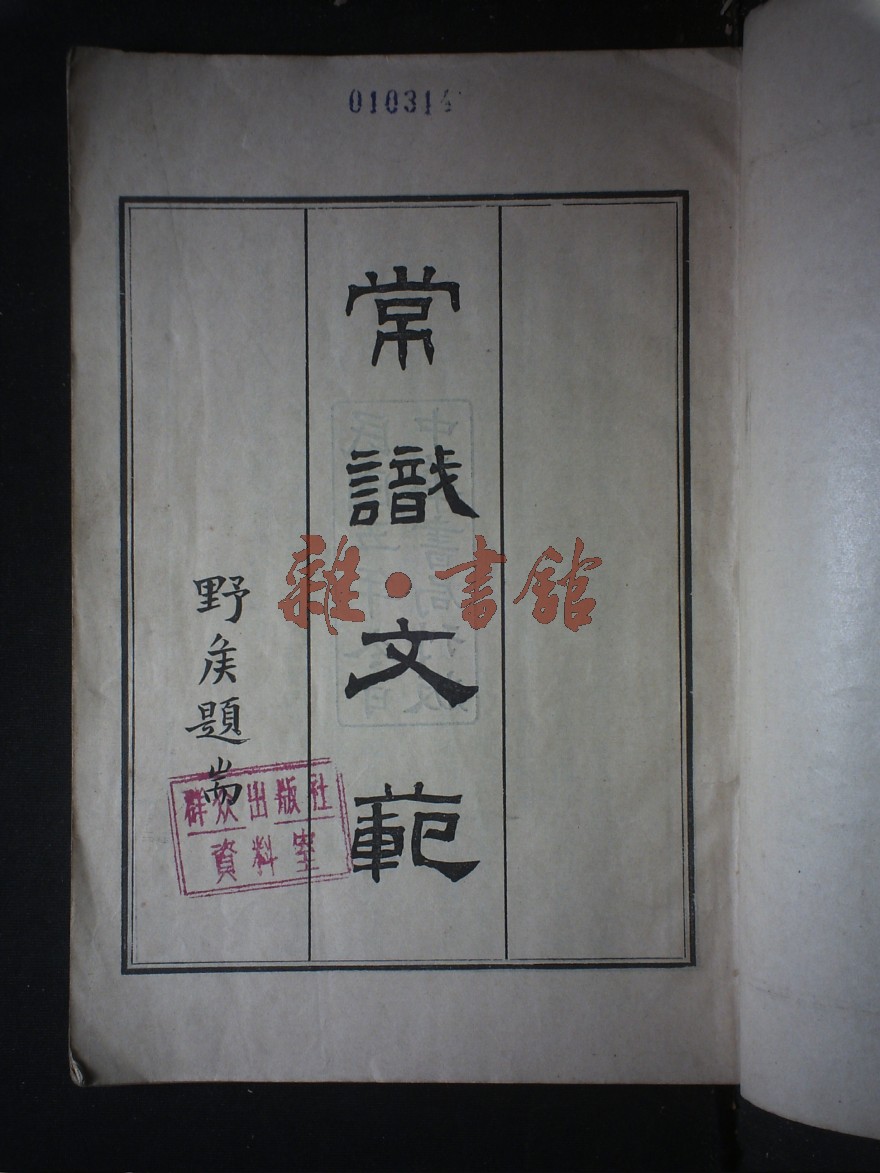 01031
常識文範
野矦題耑
雜·書館
群众出版社
資料室